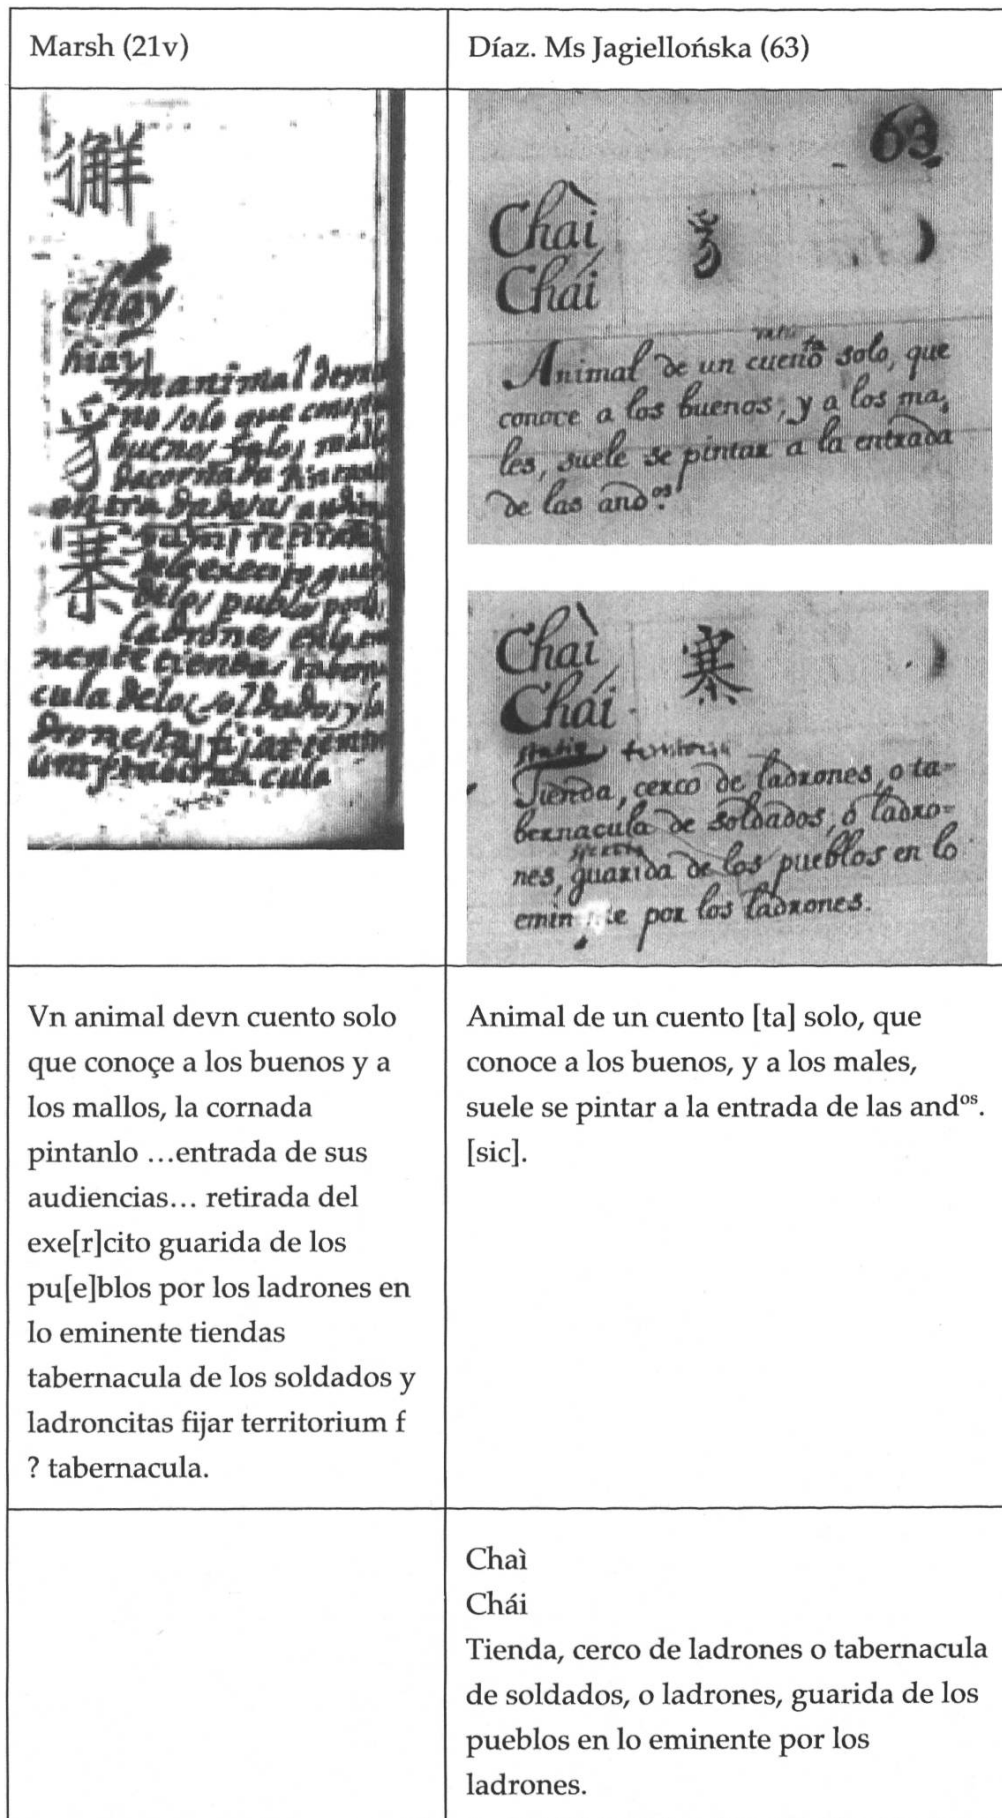 Marsh (21v)
Díaz. Ms Jagiellońska (63)
chay
hiay
豸
寨
animal devn
no solo que
buenos
entrada de sus
retirada
del exercito
de los publos
ladrones
tiendas
cula de los soldados y la
fijar
cula
63
Chaì
Chái
豸
Animal de un cuento ta solo, que
conoce a los buenos, y a los ma,
les, suele se pintar a la entrada
de las andos.
Chaì
Chái
寨
Tienda, cerco de ladrones, o ta=
bernacula de soldados, ó ladro=
nes, guarida de los pueblos en lo
emin te por los ladrones.
Vn animal devn cuento solo
que conoçe a los buenos y a
los mallos, la cornada
pintanlo …entrada de sus
audiencias… retirada del
exe[r]cito guarida de los
pu[e]blos por los ladrones en
lo eminente tiendas
tabernacula de los soldados y
ladroncitas fijar territorium f
? tabernacula.
Animal de un cuento [ta] solo, que
conoce a los buenos, y a los males,
suele se pintar a la entrada de las andos.
[sic].
Chaì
Chái
Tienda, cerco de ladrones o tabernacula
de soldados, o ladrones, guarida de los
pueblos en lo eminente por los
ladrones.